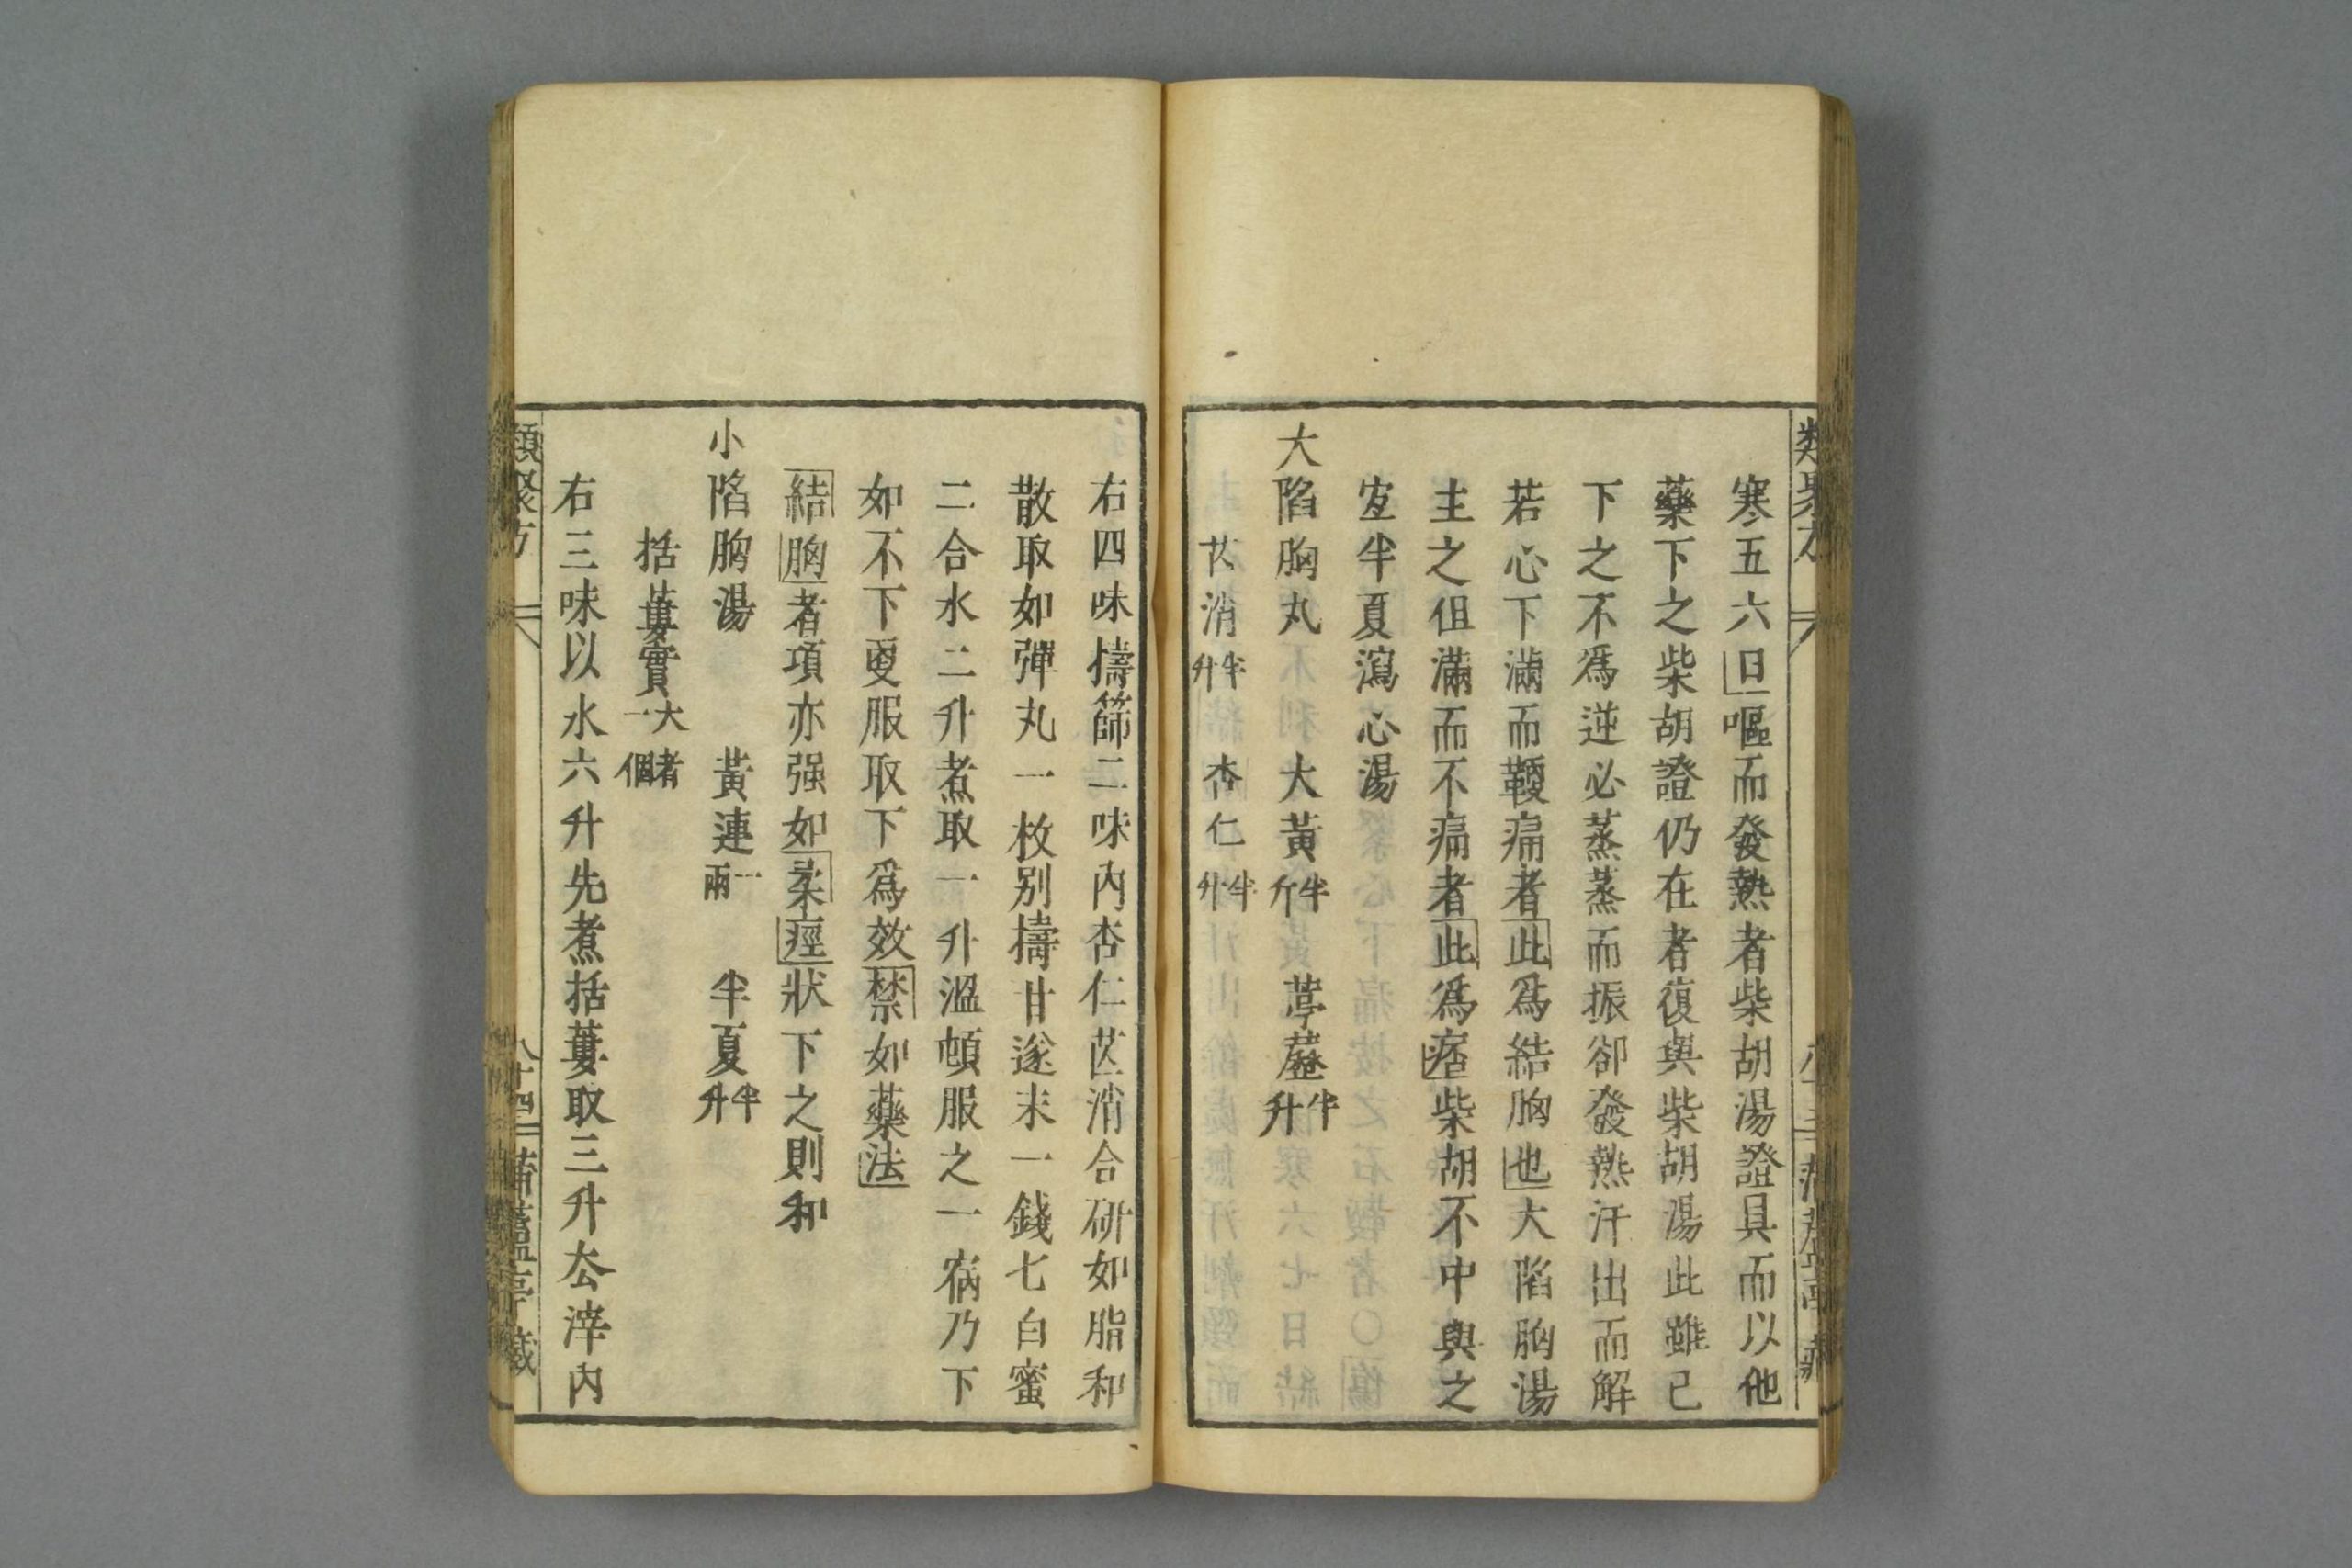 寒五六日嘔而發熱者柴胡湯證具而以他
藥下之柴胡證仍在者復與柴胡湯此雖已
下之不爲逆必蒸蒸而振卻發熱汗出而解
若心下滿而鞕痛者此爲結胸也大陷胸湯
主之但滿而不痛者此爲痞柴胡不中與之
宜半夏瀉心湯
大陷胸丸 大黃半斤 葶藶半升
芒消半升 杏仁半升
右四味擣篩二味內杏仁芒消合研如脂和
散取如彈丸一枚別擣甘遂末一錢七白蜜
二合水二升煮取一升溫頓服之一宿乃下
如不下更服取下爲效禁如藥法
結胸者項亦强如柔痙狀下之則和
小陷胸湯 黃連一兩 半夏半升
括蔞實大者一個
右三味以水六升先煮括蔞取三升去滓內
類聚方 八十四